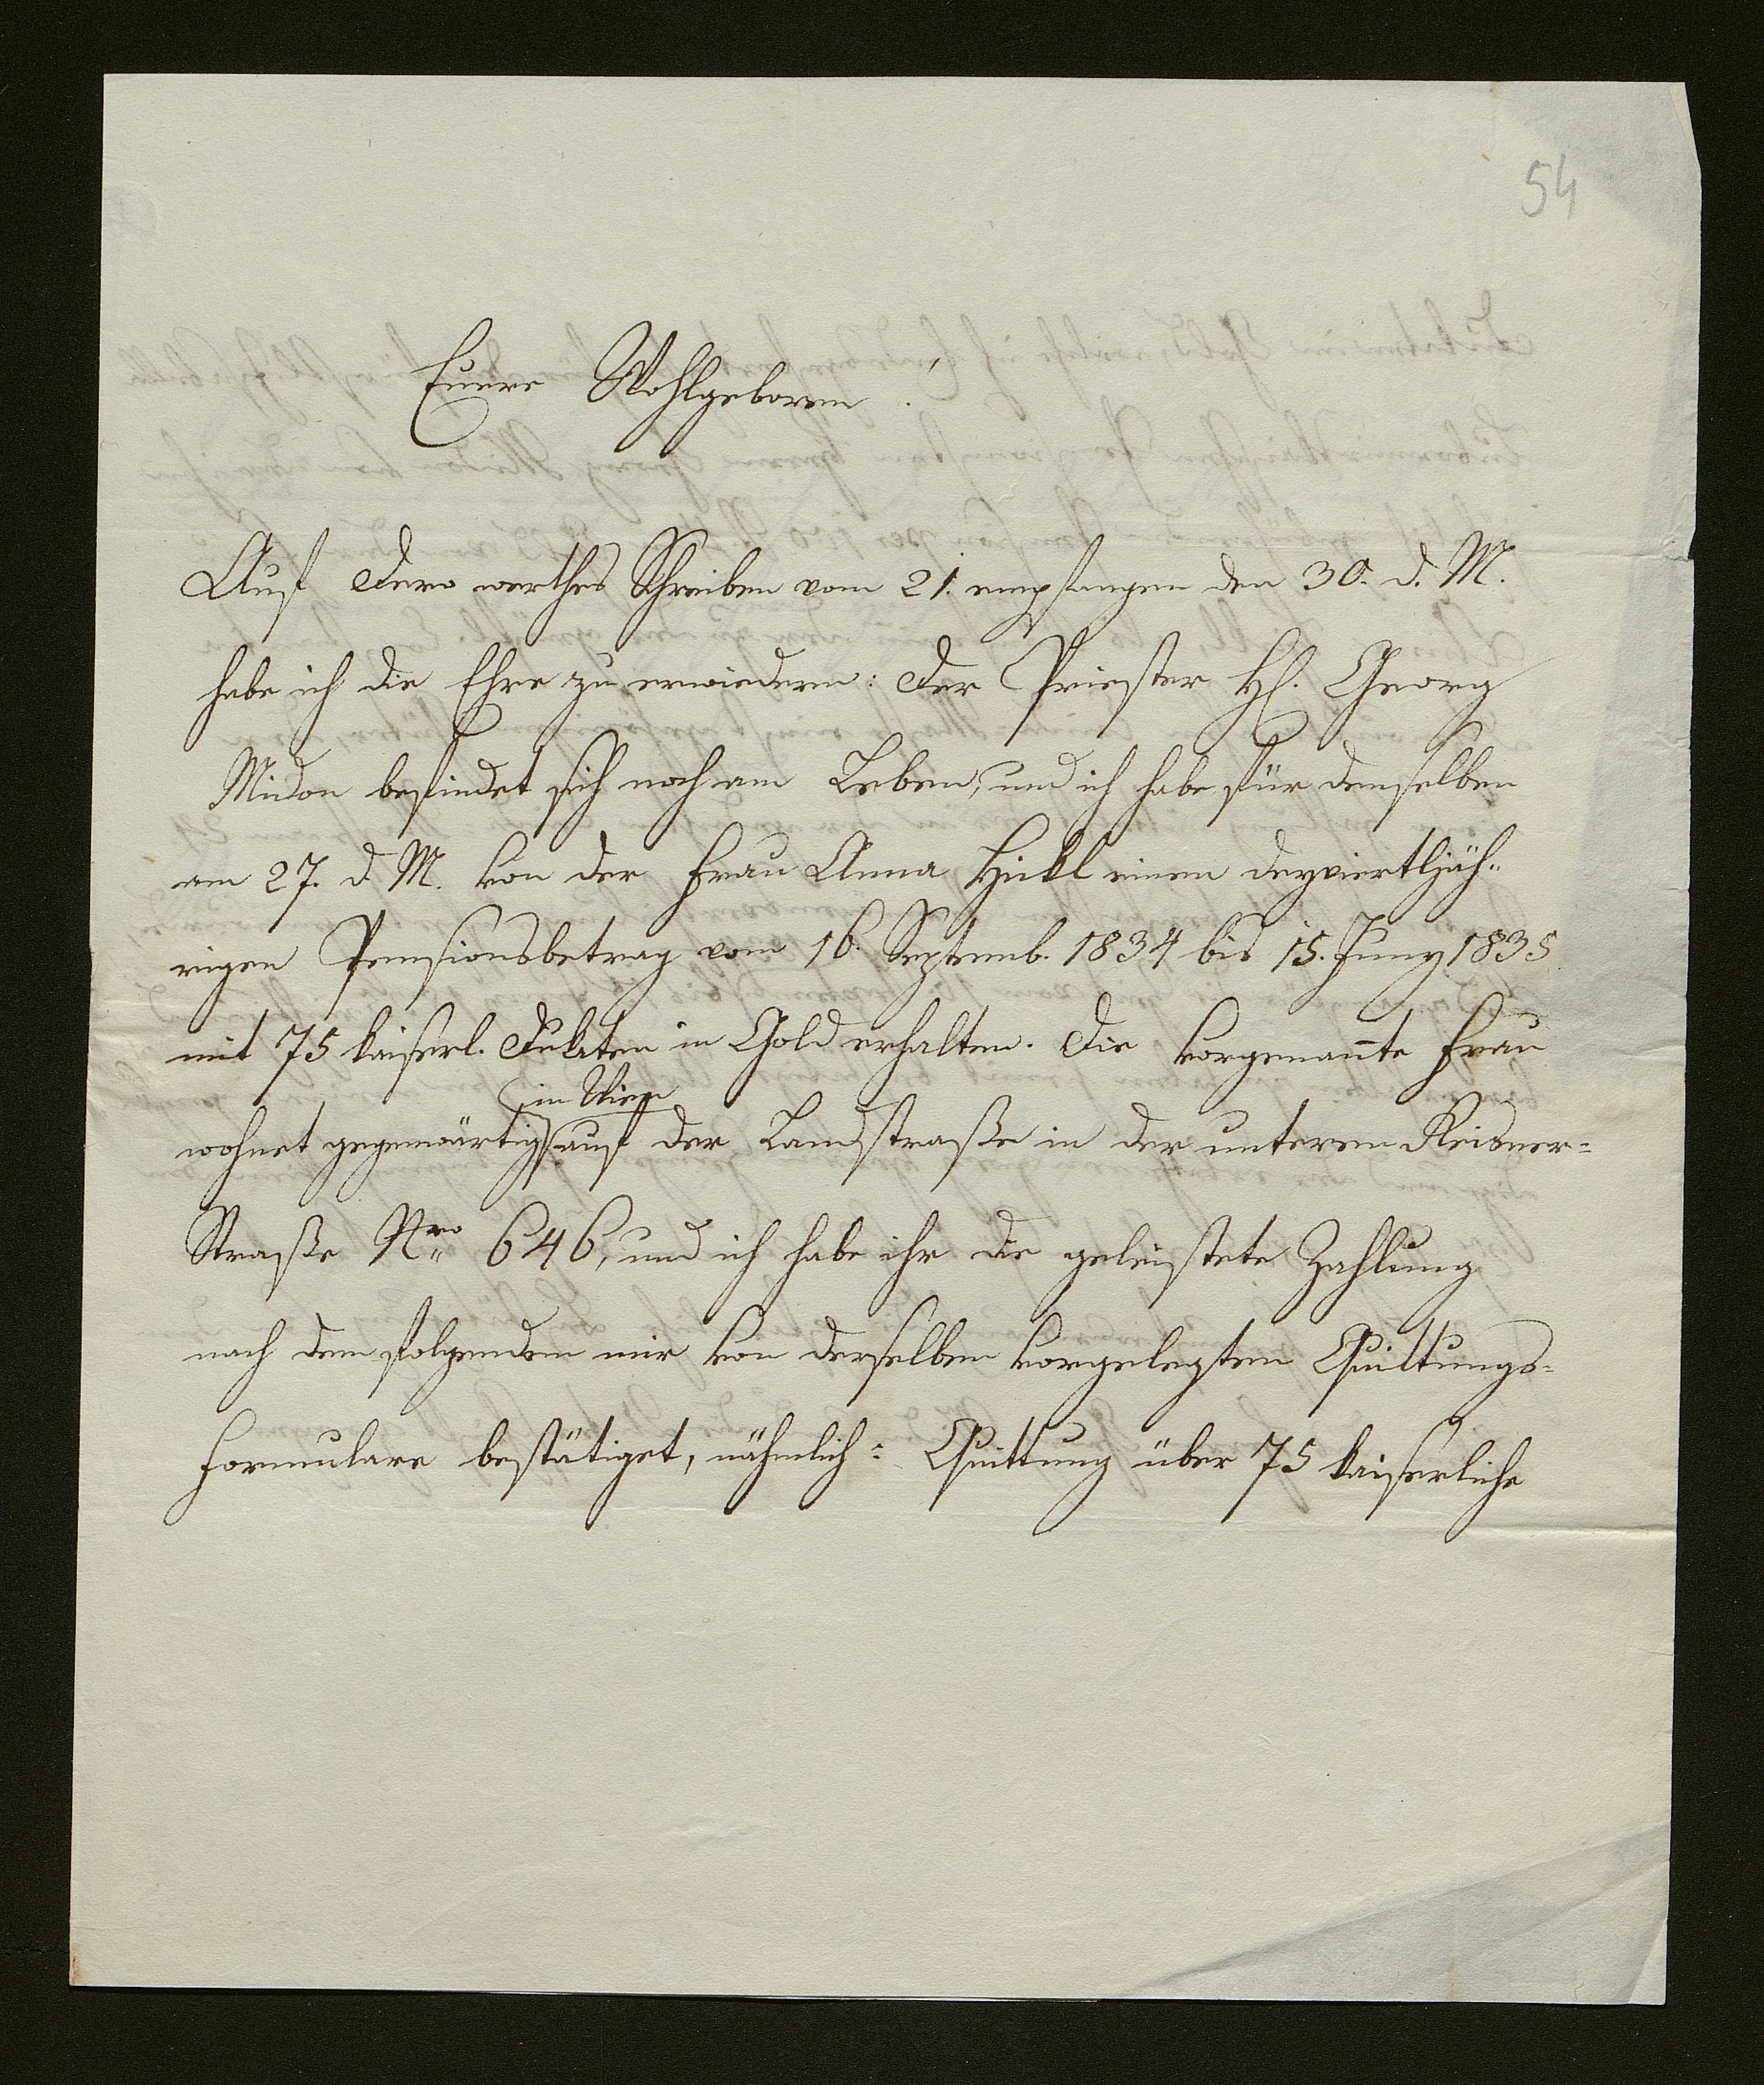 54
Euere Wohlgeboren!
Auf Dero werthes Schreiben vom 21. empfangen den 30. d. M.
habe ich die Ehre zu erwiedern: Der Priester H. Georg
Midon befindet sich noch am Leben, und ich habe für denselben
am 27. d M. von der Frau Anna Hickl einen dreyviertljäh-
rigen Pensionsbetrag vom 16. Septemb. 1834 bis 15. Juny 1835
mit 75 kaiserl. Dukaten in Gold erhalten. Die vorgenannte Frau
in Wien
wohnet gegenwärtig auf der Landstraße in der unteren Reisner-
Straße Nro 646, und ich habe ihr die geleistete Zahlung
nach dem folgenden mir von derselben vorgelegten Quittungs-
Formulare bestätiget, nähmlich: Quittung über 75 kaiserliche